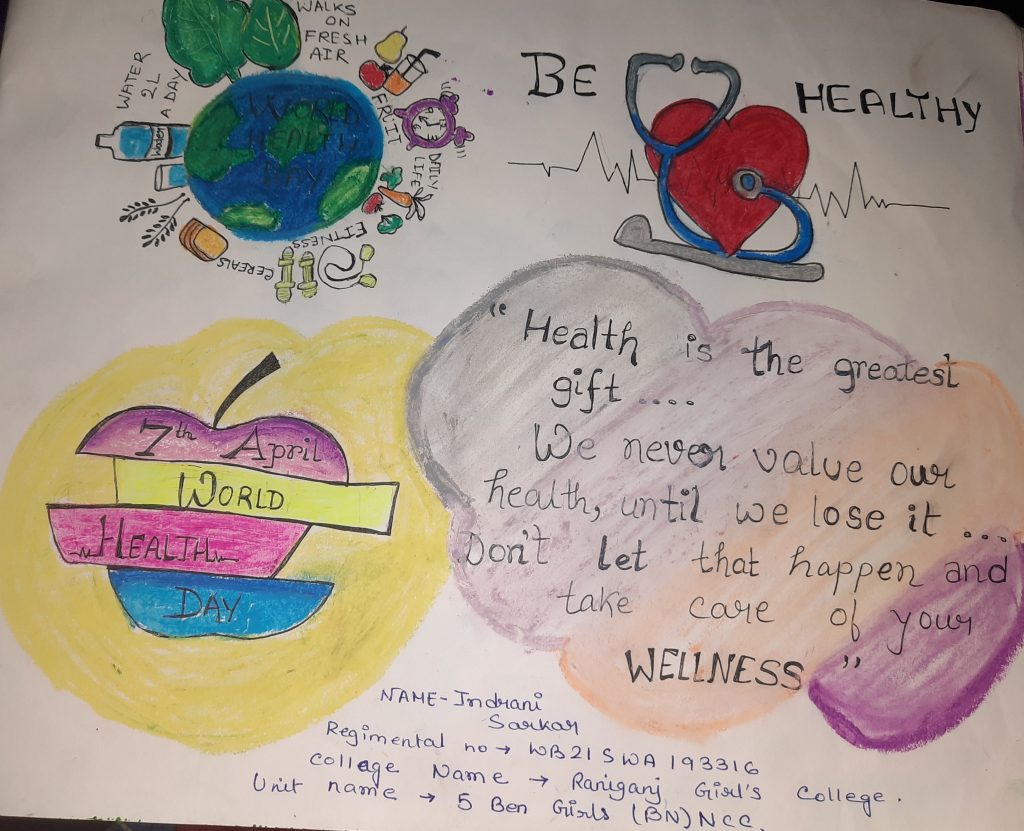 WALKS
ON
FRESH
AIR
WATER
2L
A DAY
Water
FRUIT
DAILY
LIFE
FITNESS
CEREALS
WORLD
HEALTH
DAY
BE HEALTHY
7th April
WORLD
HEALTH
DAY
"Health is the greatest
gift ....
We never value our
health, until we lose it ...
Don't let that happen and
take care of your
WELLNESS"
NAME-Indrani
Sarkar
Regimental no → WB21SWA193316
College Name → Raniganj Girl's College.
Unit name → 5 Ben Girls (BN) NCC.